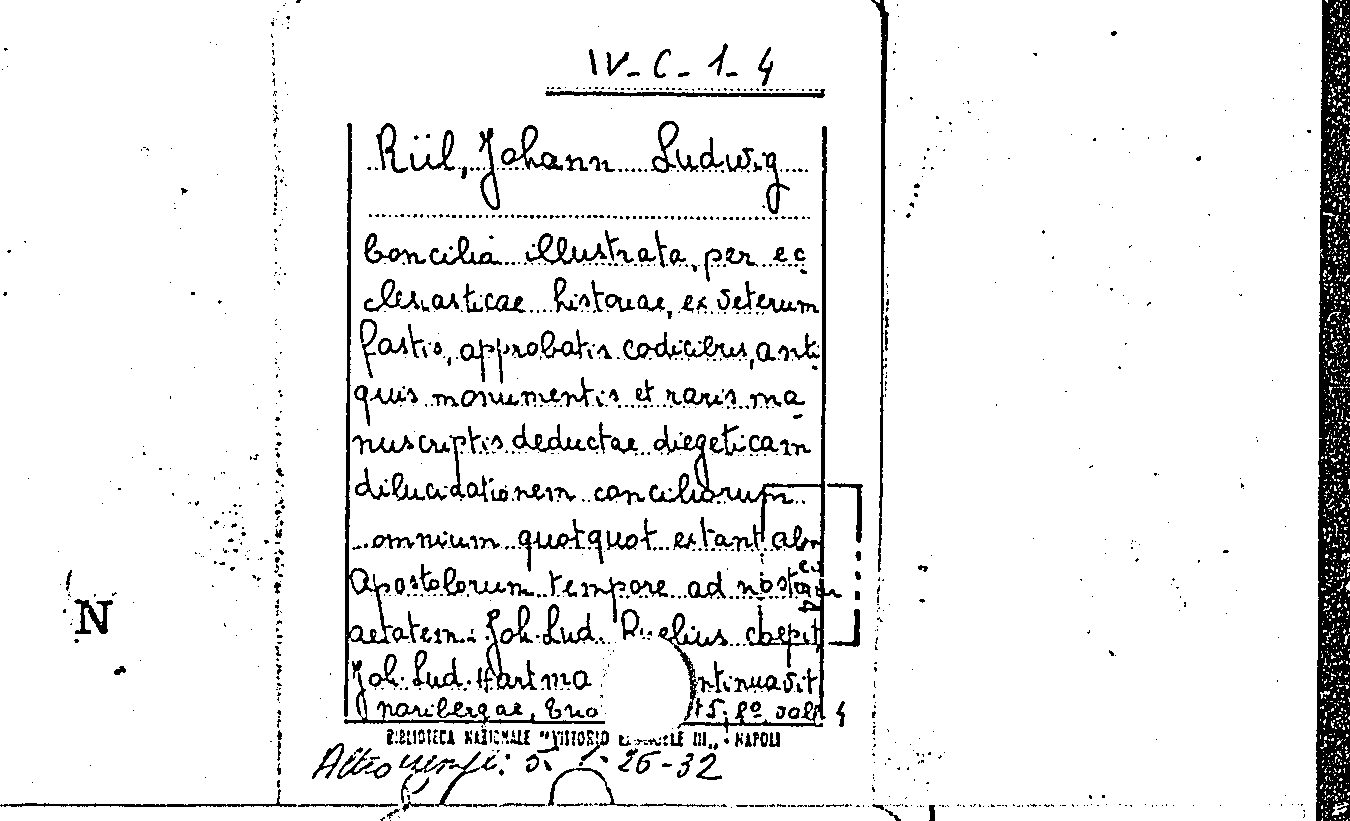 IV-C-1-4
Rül, Johann Ludwig
Concilia illustrata, per ec
clesiasticae historiae, ex veterum
fastis, approbatis codicibus, anti
quis monumentis et raris ma
nuscriptis deductae diegeticam
dilucidationem conciliorum
omnium quotquot extant ab
Apostolorum tempore ad nostram
aetatem. Joh. Lud. R elius coepit
Joh. Lud. Hartma ntinuavit
Noribergae, 5, fº, voll. 4
BIBLIOTECA NAZIONALE "VITTORIO EMANUELE III" - NAPOLI
Altro 5. 1. 26-32
N